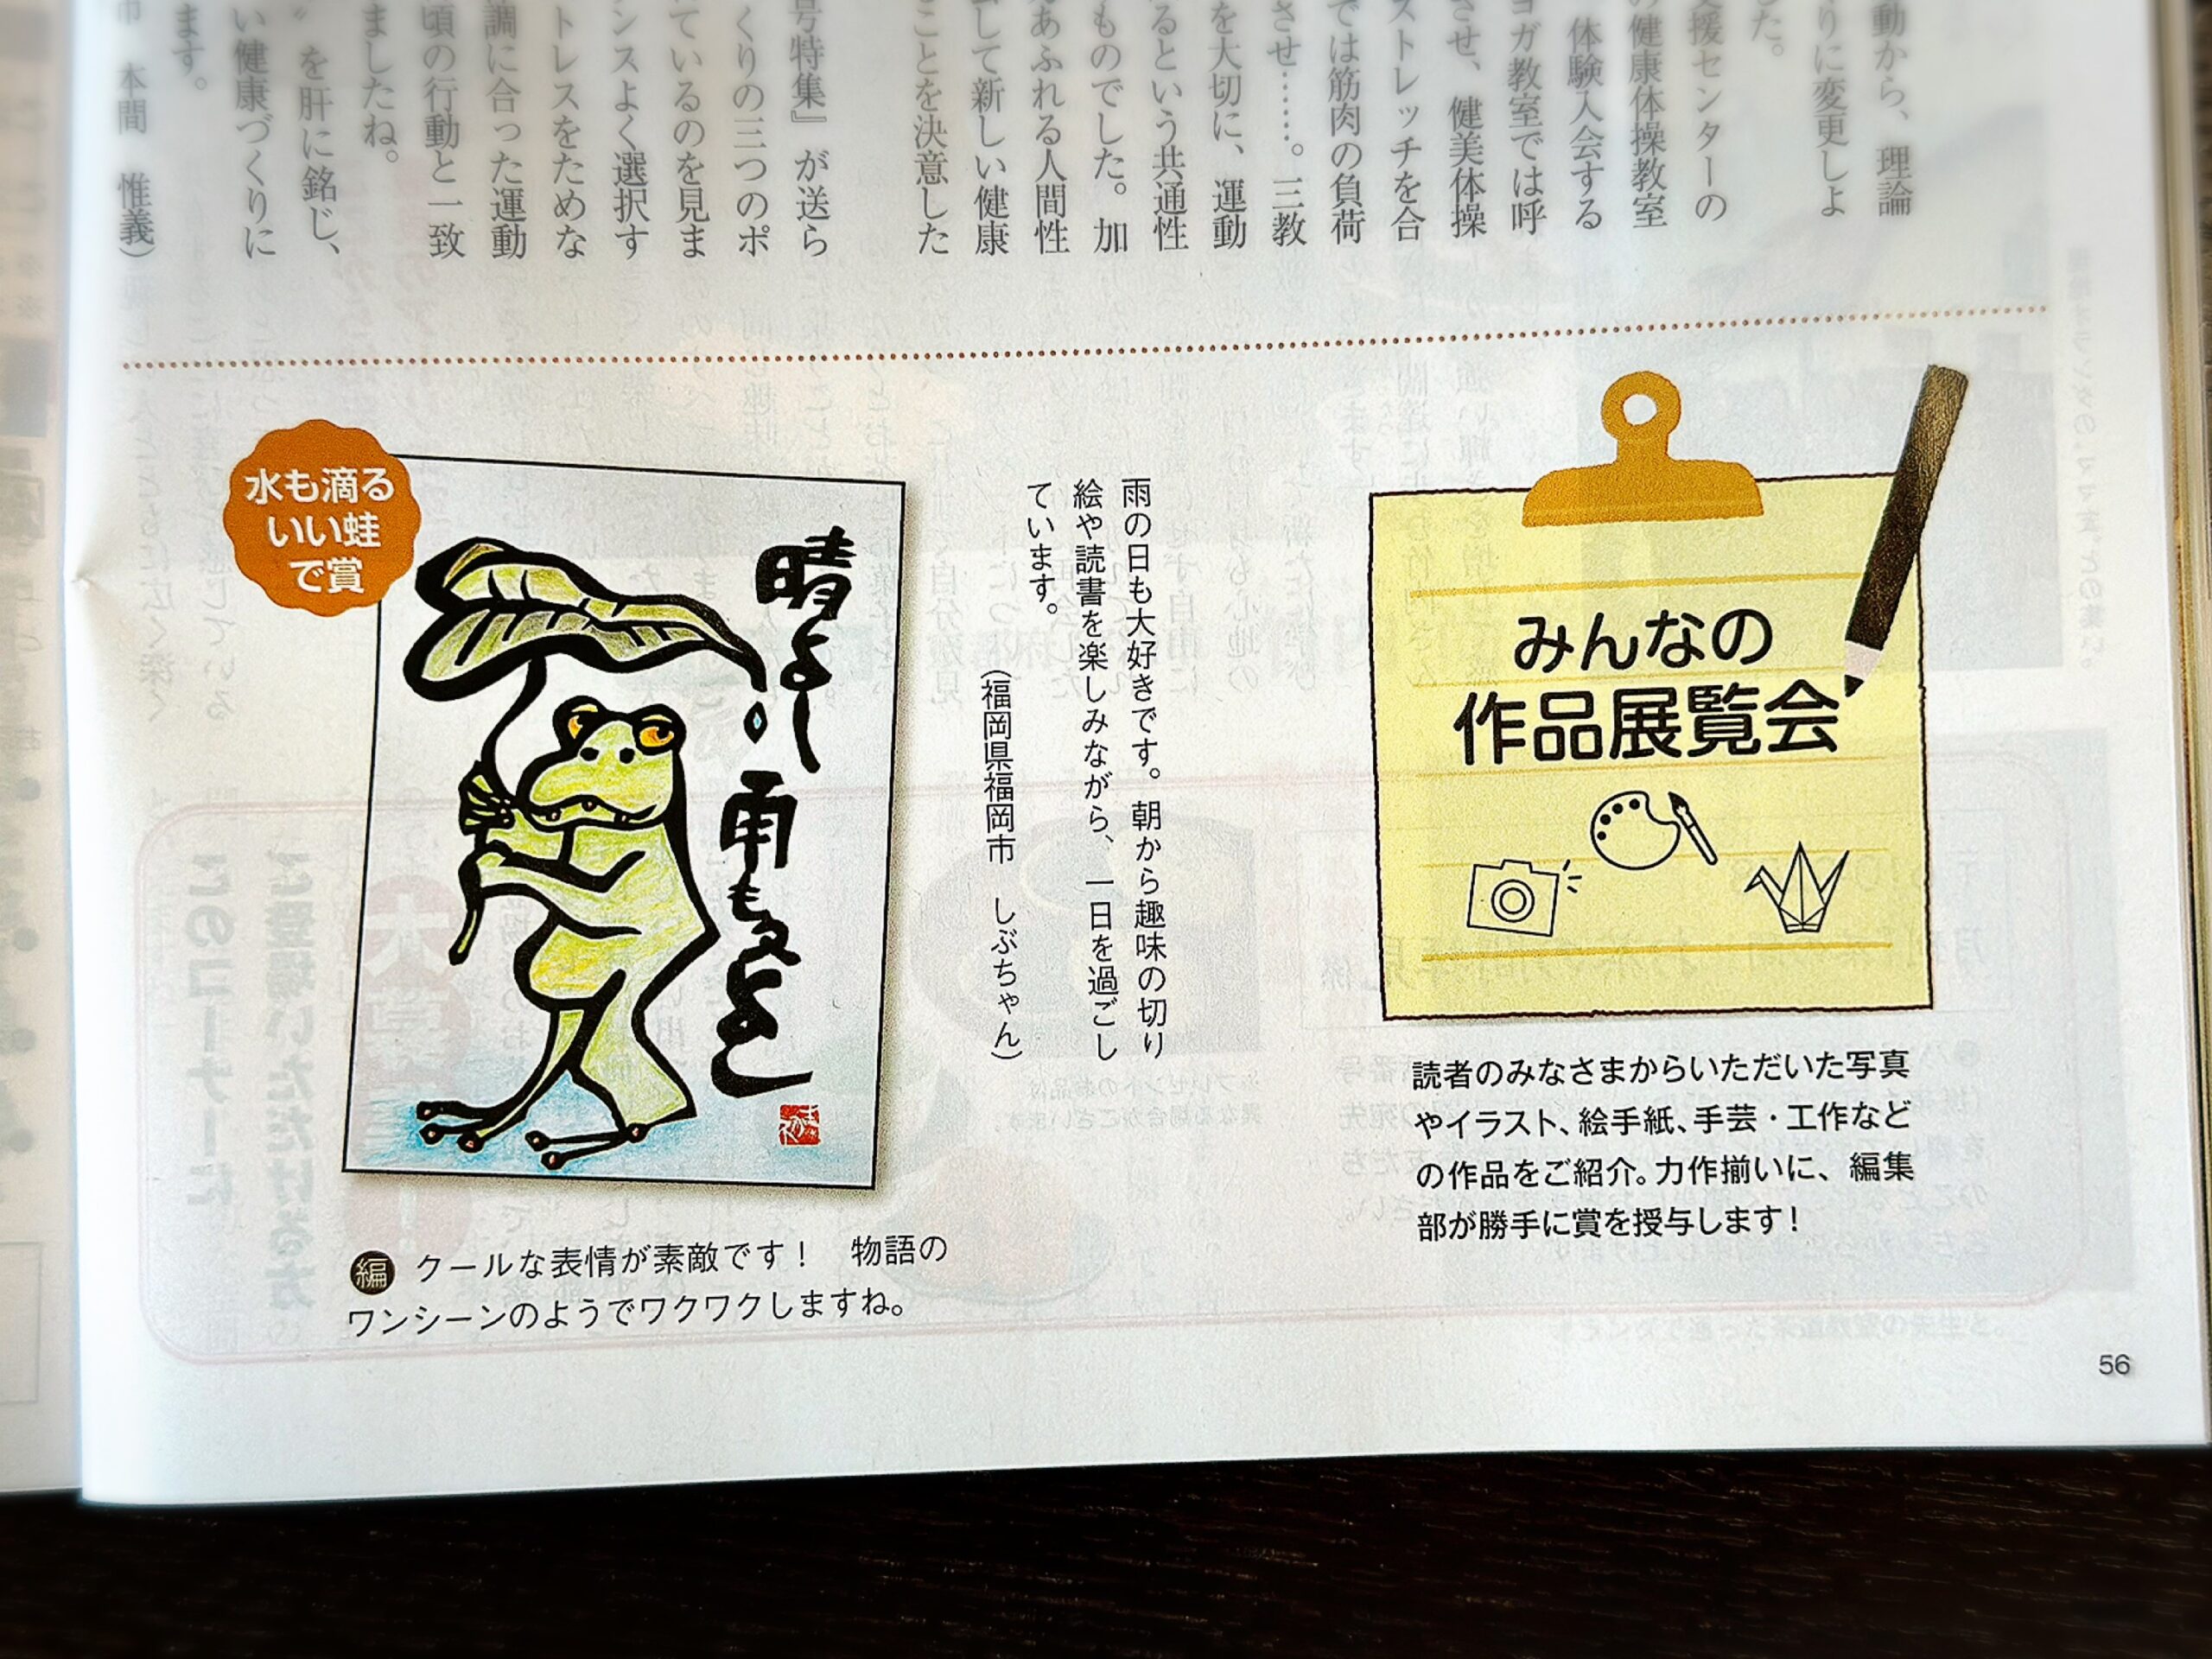 動から、理論
りに変更しよ
した。
支援センターの
健康体操教室
体験入会する
ヨガ教室では呼
させ、健美体操
ストレッチを合
では筋肉の負荷
させ……。三教
を大切に、運動
るという共通性
ものでした。加
あふれる人間性
して新しい健康
ことを決意した
号特集』が送ら
くりの三つのポ
ているのを見ま
ンスよく選択す
トレスをためな
調に合った運動
頃の行動と一致
ましたね。
〟を肝に銘じ、
い健康づくりに
ます。
市 本間 惟義)
みんなの
作品展覧会
読者のみなさまからいただいた写真
やイラスト、絵手紙、手芸・工作など
の作品をご紹介。力作揃いに、編集
部が勝手に賞を授与します!
雨の日も大好きです。朝から趣味の切り
絵や読書を楽しみながら、一日を過ごし
ています。
(福岡県福岡市 しぶちゃん)
水も滴る
いい蛙
で賞
晴よし
雨もまたよし
編 クールな表情が素敵です! 物語の
ワンシーンのようでワクワクしますね。
56